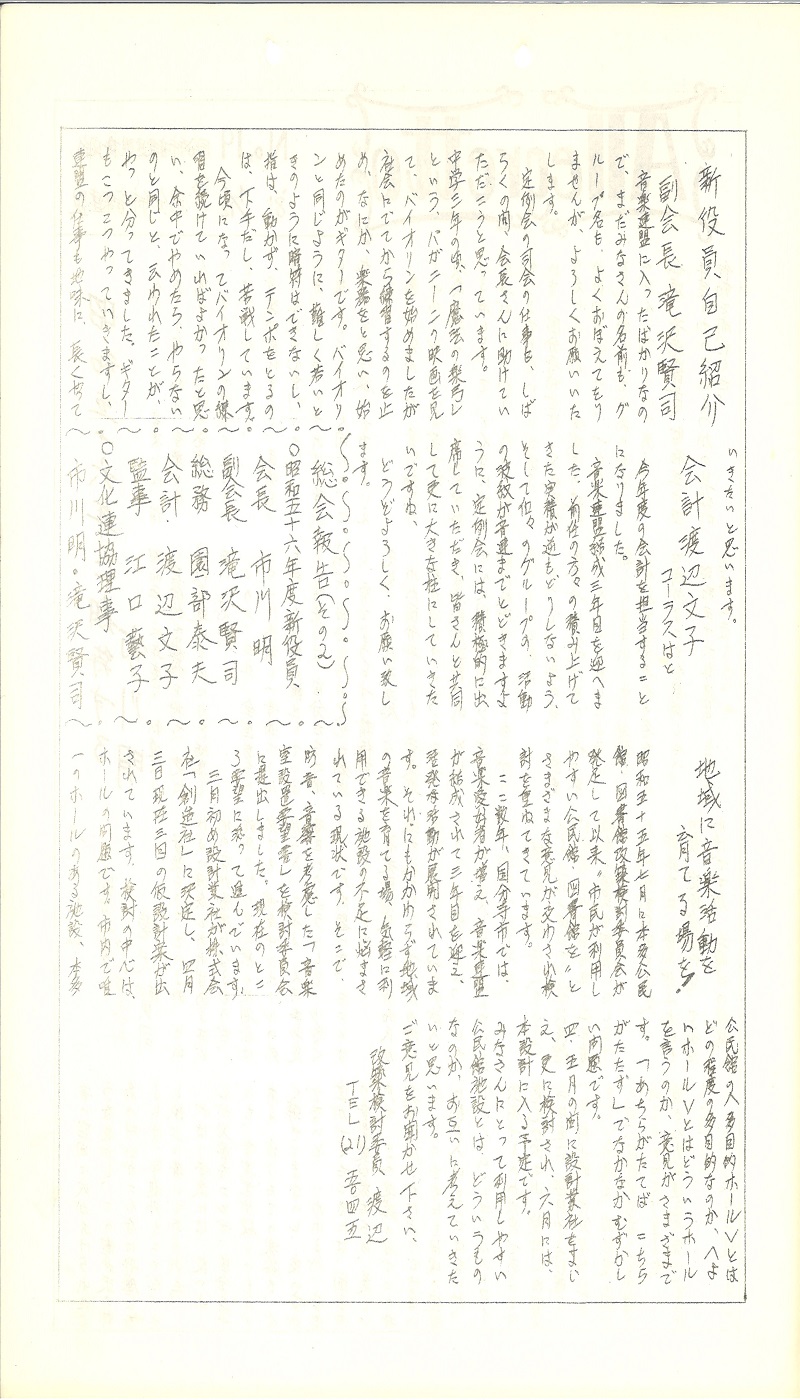 新役員自己紹介
副会長 滝沢賢司
音楽連盟に入ったばかりなの
で、まだみなさんの名前も、グ
ループ名も、よくおぼえてをり
ませんが、よろしくお願いいた
します。
定例会の司会の仕事も、しば
らくの間、会長さんに助けてい
ただこうと思っています。
中学三年の頃、「魔法の楽弓」
という、パガニーニの映画を見
て、バイオリンを始めましたが
社会にでてから練習するのを止
め、なにか、楽器をと思い、始
めたのがギターです。バイオリ
ンと同じように、難しく若いと
きのように暗符はできないし、
指は、動かず、テンポをとるの
は、下手だし、苦戦しています。
今頃になってバイオリンの練
習を続けていればよかったと思
い、途中でやめたら、やらない
のと同じと、云われたことが、
やっと分ってきました。ギター
もこつこつやっていきますし、
連盟の仕事も地味に、長くやって
いきたいと思います。
会計 渡辺文子
コーラスはと
今年度の会計を担当すること
になりました。
音楽連盟結成三年目を迎へま
した。前任の方々の積み上げて
きた実績が逆もどりしないよう、
そして個々のグループの、活動
の波紋が音連までとどきますよ
うに、定例会には、積極的に出
席していただき、皆さんと共同
して更に大きな柱にしていきた
いですね、
どうぞよろしく、お願い致し
ます。
総会報告(その2)
○昭和五十六年度新役員
会長 市川 明
副会長 滝沢賢司
総務 園部泰夫
会計 渡辺文子
監事 江口藝子
○文化連協理事
市川明・滝沢賢司
地域に音楽活動を
育てる場を!
昭和五十五年七月に本多公民
館・図書館改築検討委員会が
発足して以来〃市民が利用し
やすい公民館・図書館を〃と
さまざまな意見が交わされ検
討を重ねてきています。
ここ数年、国分寺市では、
音楽愛好者が増え、音楽連盟
が結成されて三年目を迎え、
活発な活動が展開されていま
す。それにもかかわらず地域
の音楽を育てる場、気軽に利
用できる施設の不足に悩まさ
れている現状です。そこで、
防音、音響を考慮した「音楽
室設置要望書」を検討委員会
に提出しました。現在のとこ
ろ要望に添って進んでいます。
三月初め設計業社が株式会
社「創造社」に決定し、四月
三日現在三回の仮設計案が出
されています。検討の中心は、
ホールの問題です。市内で唯
一のホールのある施設、本多
公民館の〈多目的ホール〉とは
どの程度の多目的なのか、〈よ
いホール〉とはどういうホール
を言うのか、意見がさまざまで
す。「あちらがたてば こちら
がたたず」でなかなかむずかし
い問題です。
四・五月の間に設計業社をまじ
え、更に検討され、六月には、
本設計に入る予定です。
みなさんにとって利用しやすい
公民館施設とは、どういうもの
なのか、お互いに考えていきた
いと思います。
ご意見をお聞かせ下さい。
改築検討委員 渡辺
TEL(21)五〇四五